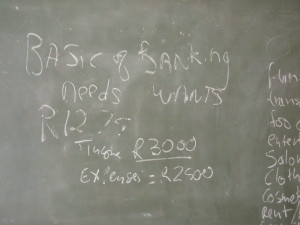 BASIC of BANKing
needs WANTS
R1275
Income R3000
Expenses = R2500
foo
enter
Salon
Cloth
Cosmet
Rent /